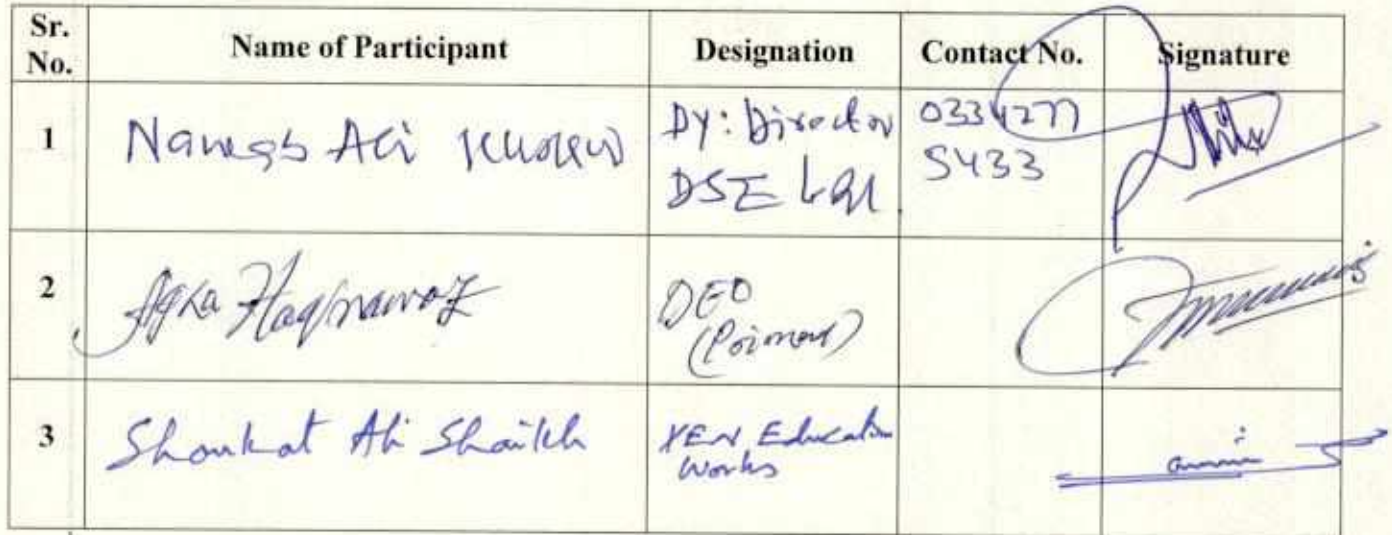 Sr. No. Name of Participant Designation Contact No. Signature
1 Ali DY: Director 0334277
DSE 5433
2 Agha Haqnawaz DEO
3 Shoukat Ali Shaikh XEN Education
Works